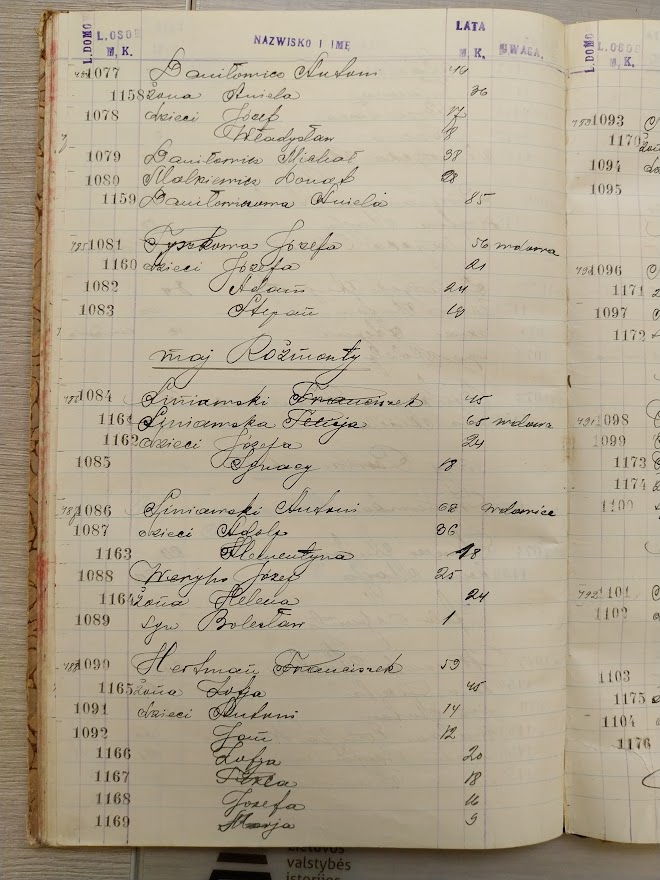 L. DOMO L. OSOB M. K. NAZWISKO I IMĘ LATA M. K. UWAGA.
1077 Daniłowicz Antoni 40
1158 żona Aniela 36
1078 dzieci Józef 17
Władysław 8
1079 Daniłowicz Michał 38
1080 Malkiewicz Donat 28
1159 Daniłowiczowa Aniela 85
485 1081 Józefa 56 wdowa
1160 dzieci Józefa 21
1082 Adam 24
1083 Stepan 18
maj Rożmonty
486 1084 Siniawski Franciszek 45
1161 Siniawska Felicja 65 wdowa
1162 dzieci Józefa 24
1085 Ignacy 18
487 1086 Siniawski Antoni 68 wdowiec
1087 dzieci Adolf 36
1163 Klementyna 18
1088 Weryho Józef 25
1164 żona Helena 24
1089 syn Bolesław 1
488 1090 Hertman Franciszek 59
1165 żona Zofja 45
1091 dzieci Antoni 14
1092 Jan 12
1166 Zofja 20
1167 18
1168 Józefa 16
1169 Marja 9
L. DOMO L. OSOB M. K.
1093
1170
1094
1095
1096
1171
1097
1172
491 1098
1099
1173
1174
1100
792 1101
1102
1103
1175
1104
1176
Lietuvos
valstybės
istorijos